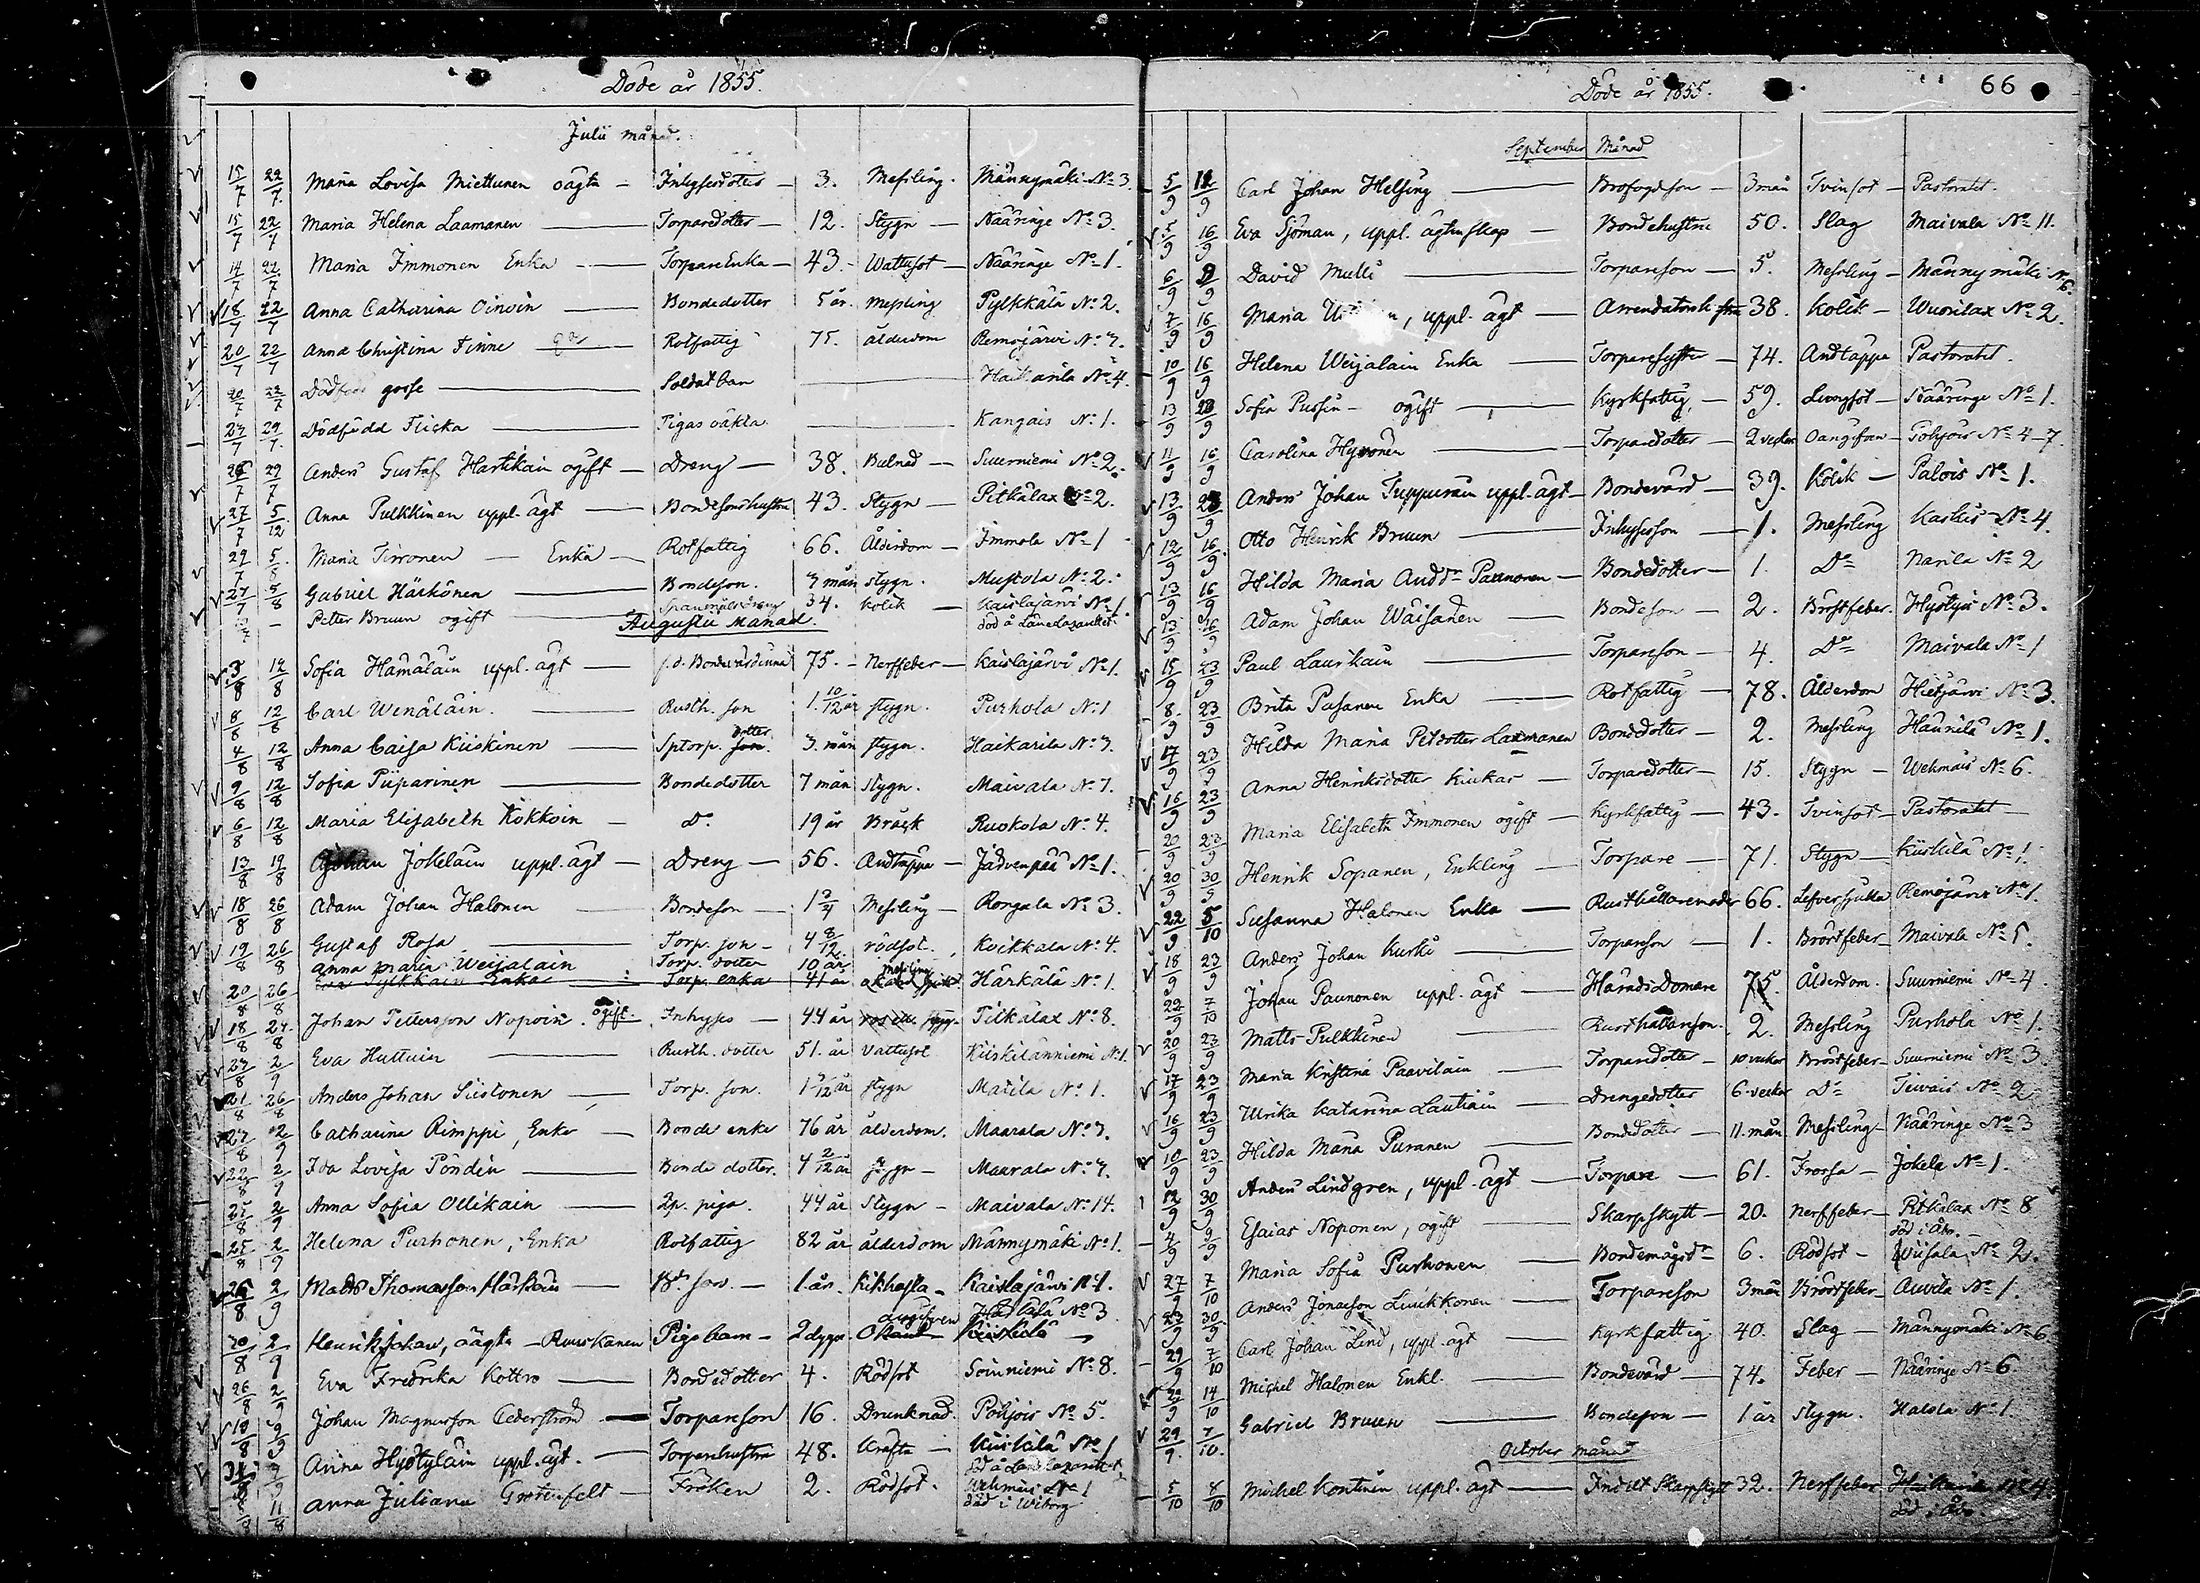 Döde år 1855.
Julii månad.
15/7 22/7 Maria Lovisa Miettunen oägta — Inhysesdotter — 3. Messling. Männymäki No 3
15/7 22/7 Maria Helena Laamanen — Torparedotter — 12. Stygn — Nääringe No 3.
14/7 22/7 Maria Immonen Enka — TorpareEnka — 43. — Wattusot — Nääringe No 1.
18/7 22/7 Anna Catharina Oinoin — Bondedotter 5 år. Messling Pylkkälä No 2.
20/7 22/7 Anna Christina Finne — Rotfattig 75. ålderdom Remojärvi No 7.
20/7 22/7 Dödfödd gosse — Soldatbarn — Haikarila No 4.
27/7 29/7 Dödfödd Flicka — Pigas oäkta — Kangais No 1.
29/7 Anders Gustaf Hartikain ogift — Dreng — 38. Bulnad — Suurniemi No 2.
27/7 5/12 Anna Pulkkinen uppl. ägt — Bondesonshustru 43. Stygn — Pitkälax No 2.
29/7 5/8 Maria Tirronen — Enka — Rotfattig 66. Ålderdom — Immola No 1
27/7 5/8 Gabriel Härkönen — Bondeson. 7 mån stygn. Mustola No 2.
Petter Bruun ogift 34. Kolik — Kaislajärvi No 1.
död å Läns Lazarettet.
Augustu Månad.
3/8 12/8 Sofia Hämäläin uppl. ägt — f.d. Bondevärdinna 75. — Nerffeber — Kaislajärvi No 1.
8/8 12/8 Carl Wenäläin. — Rusth. son 1. 10/12 år stygn. Purhola No 1
4/8 12/8 Anna Caisa Kiiskinen — Sptorp. dotter 3. mån stygn. Haikarila No 3.
9/8 12/8 Sofia Piiparinen — Bondedotter 7 mån stygn. Maivala No 7.
6/8 12/8 Maria Elisabeth Kokkoin — Do 19 år Bråck Ruokola No 4.
13/8 19/8 Johan Jokelain uppl. ägt — Dreng — 56. Andtäppa — Jädvenpää No 1.
18/8 26/8 Adam Johan Halonen — Bondeson — Messling — Rongala No 3.
19/8 26/8 Gustaf Rosa — Torp. son — 4 8/12 rödsot. Koikkala No 4.
Anna Maria Weijalain Torp. dotter 10 år messling
20/8 26/8 Eva Pylkkäin Enka — Torp. enka 41 år Härkälä No 1.
18/8 Johan Pettersson Nopoin. ogift. Inhyses — 44 år Pitkälax No 8.
27/8 2/9 Eva Huttuin — Rusth. dotter 51. år vattusot Kiiskilänniemi No 1.
21/8 26/8 Anders Johan Siistonen — Torp. son. stygn Matila No 1.
27/8 2/9 Catharina Rimppi, Enka — Bonde enka 76 år ålderdom. Maarala No 7.
2/9 Ida Lovisa Pöndin — Bonde dotter. 4 2/12 år stygn — Maarala No 7.
25/8 2/9 Anna Sofia Ollikain — Sp. piga. 44 år Stygn — Maivala No 14.
25/8 2/9 Helena Purhonen, Enka Rotfattig 82 år ålderdom Männymäki No 1.
26/8 2/9 Matts Thomasson Härköin — Bd. son. — 1 år. Kikhosta — Kaislajärvi No 1.
30/8 2/9 Henrik Johan, oägta — Ruuskanen Pigobarn — 2 dygn. Okänd Härkälä No 3
26/8 2/9 Eva Fredrika Kottro — Bondedotter 4. Rödsot Soinniemi No 8.
10/8 9/9 Johan Magnusson Cederström — Torpareson 16. Drunknad. Pohjois No 5.
31/8 9/9 Anna Hyötyläin uppl. ägt. — Torparehustru 48. Kräfta — Kiiskilä No 1
död å Länslazarettet
Anna Juliana Grotenfelt — Fröken 2. Rödsot. Wehmais No 1
död i Wiborg
Döde år 1855. 66
September Månad
5/9 12/9 Carl Johan Helsing — Brofogdson — 3 mån Tvinsot — Pastoratet.
5/9 16/9 Eva Sjöman, uppl. ägtenskap — Bondehustru 50. Slag Maivala No 11.
6/9 9/9 David Mulli — Torpareson — 5. Messling — Männymäki No 6.
7/9 16/9 Maria, uppl. ägt — Arrendators h-stru 38. Kolik — Wuorilax No 2.
10/9 16/9 Helena Weijalain Enka — Torparesyster — 74. Andtäppa Pastoratet.
13/9 23/9 Sofia Pussin — ogift — Kyrkfattig — 59. Lungsot — Nääringe No 1.
11/9 16/9 Carolina Hyvönen — Torparedotter — 2 veckor Oangifven — Pohjois No 4-7.
13/9 23/9 Anders Johan Tuppurain uppl. ägt — Bondevärd — 39. Kolik — Palois No 1.
12/9 16/9 Otto Henrik Bruun — Inhysesson — 1. Messling Kaskis No 4.
13/9 16/9 Hilda Maria Andr Paunonen — Bondedotter — 1. Do Narila No 2
13/9 16/9 Adam Johan Wäisänen — Bondeson — 2. Bröstfeber. Hyötyis No 3.
15/9 23/9 Paul Laurikain — Torpareson — 4. Do Maivala No 1
8/9 23/9 Brita Pusanen Enka — Rotfattig — 78. Ålderdom Hietjärvi No 3.
17/9 23/9 Hilda Maria Petdotter Laamanen Bondedotter — 2. Messling Haunila No 1.
16/9 23/9 Anna Henriksdotter Kiukas — Torparedotter — 15. Stygn — Wehmais No 6.
22/9 23/9 Maria Elisabeth Immonen ogift — Kyrkfattig — 43. Tvinsot — Pastoratet —
20/9 30/9 Henrik Sopanen, Enkling — Torpare — 71. Stygn — Kiiskilä No 1.
22/9 5/10 Susanna Halonen Enka — Rusthållaremoder 66. Lefversjuka Remojärvi No 1.
18/9 23/9 Anders Johan Kurki — Torpareson — 1. Bröstfeber — Maivala No 5.
22/9 7/10 Johan Paunonen uppl. ägt — HäradsDomare 75. Ålderdom. Suurniemi No 4.
20/9 23/9 Matts Pulkkinen — Rusthållareson. 2. Messling Purhola No 1.
17/9 23/9 Maria Kristina Paavilain — Torparedotter — 10 veckor Bröstfeber — Suurniemi No 3
16/9 23/9 Ulrika Katarina Lautiain — Drengedotter 6 veckor Do Teivais No 2
10/9 23/9 Hilda Maria Puranen — Bondedotter — 11. mån Messling — Nääringe No 3
12/9 30/9 Anders Lindgren, uppl. ägt — Torpare — 61. Frossa — Jokela No 1.
4/9 9/9 Esaias Noponen, ogift — Skarpskytt — 20. Nerffeber — Pitkälax No 8
död i Åbo. —
27/9 7/10 Maria Sofia Purhonen — Bondemågsdr 6. Rödsot — Wiisala No 2.
23/9 30/9 Anders Jonasson Liukkonen — Torpareson 3 mån Bröstfeber — Auvila No 1.
29/9 7/10 Carl Johan Lind, uppl. ägt — Kyrkfattig 40. Slag — Männymäki No 6
29/9 14/10 Michel Halonen Enkl. — Bondevärd — 74. Feber — Nääringe No 6
29/9 7/10. Gabriel Bruun — Bondeson — 1 år Stygn. Halola No 1.
October månad
5/10 8/10 Michel Kontinen uppl. ägt — Indelt Skarpskytt 32. Nerffeber No 4.
död i Åbo.